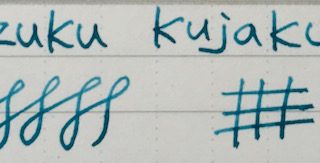 zuku kujaku